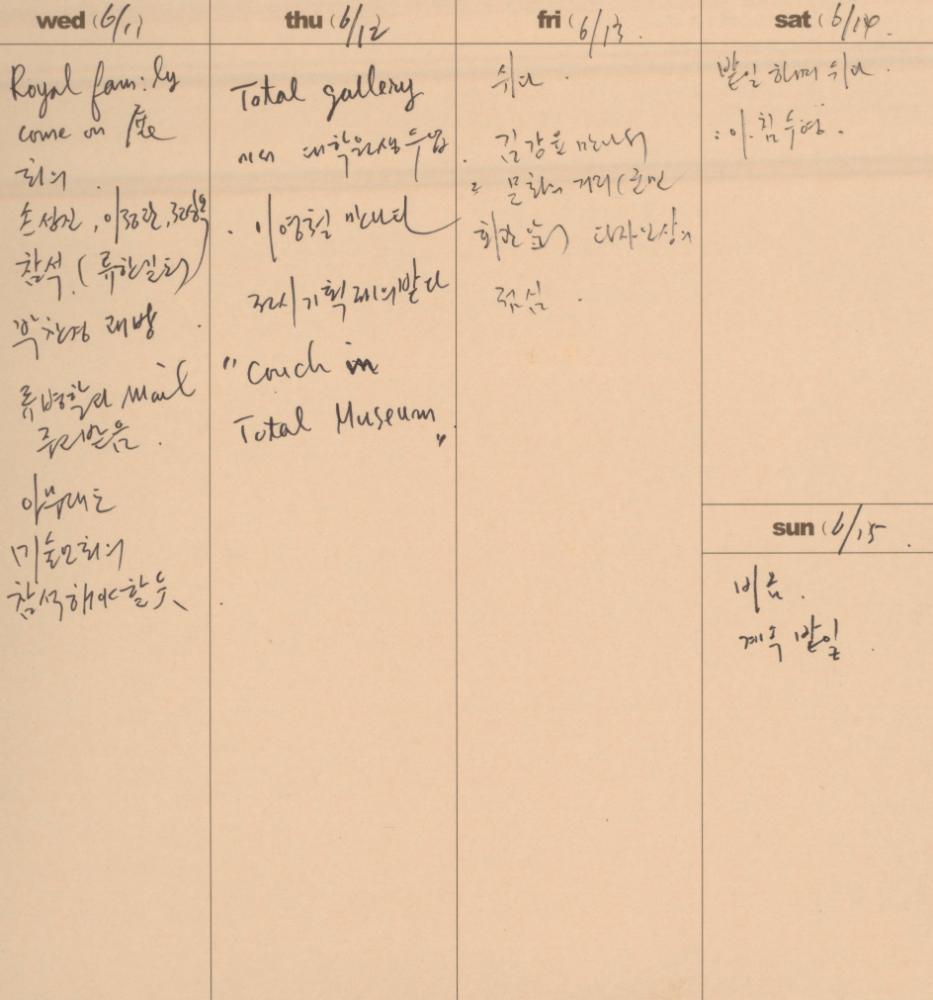 wed (6/11
Royal family
come on 展
회의 .
손성진, 이정란,
참석. (류한길
박찬경 래방 .
류병학과 mail
주고받음 .
아무래도
미술인회의
참석해야할듯
thu (6/12
Total gallery
에서 대학원생 수업
. 이영철 만나다
전시기획 제의받다
"Couch in
Total Museum"
fri (6/13.
쉬다 .
. 김강용 만나서
문화의 거리(문인
회관 앞) 디자인상의
점심 .
sat (6/14.
밭일 하며 쉬다 .
: 아침 수영 .
sun (6/15 .
비옴 .
계속 밭일 .